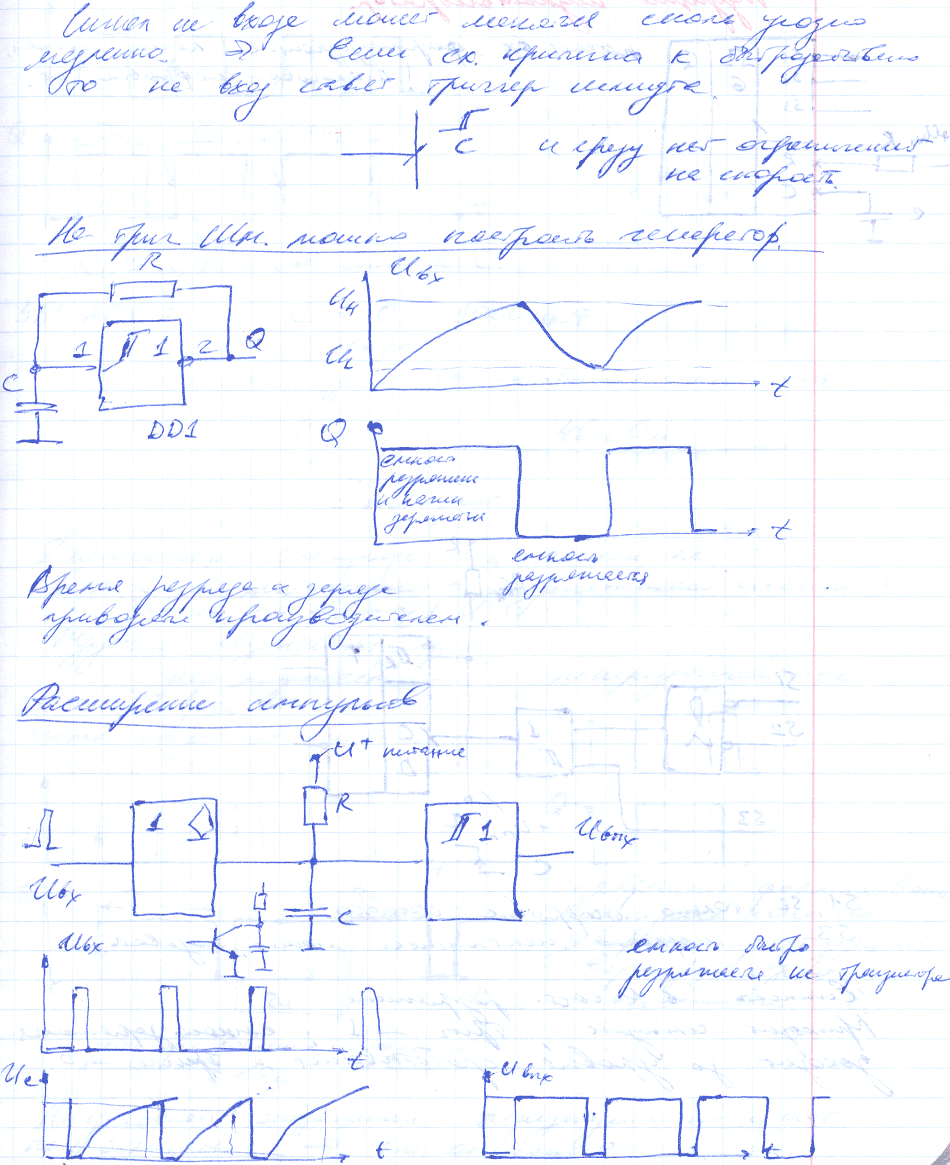 Сигнал на входе может меняться сколь угодно
медленно. Если сх. критична к быстродействию
то на вход ставят триггер шмидта.
C и сразу нет ограничений
на скорость.
На триг Шм. можно построить генератор.
R
C 1 1 2 Q
DD1
Uвх
t
Q
емкость
разряжена
и начин
заряжаться
t
емкость
разряжается
Время разряда и заряда
приводят производителем.
Расширение импульсов
U+ питание
R
1 1
Uвх Uвых
C
емкость быстро
разряжается на транзисторе
Uвх
t
Uc
t
Uвых
t